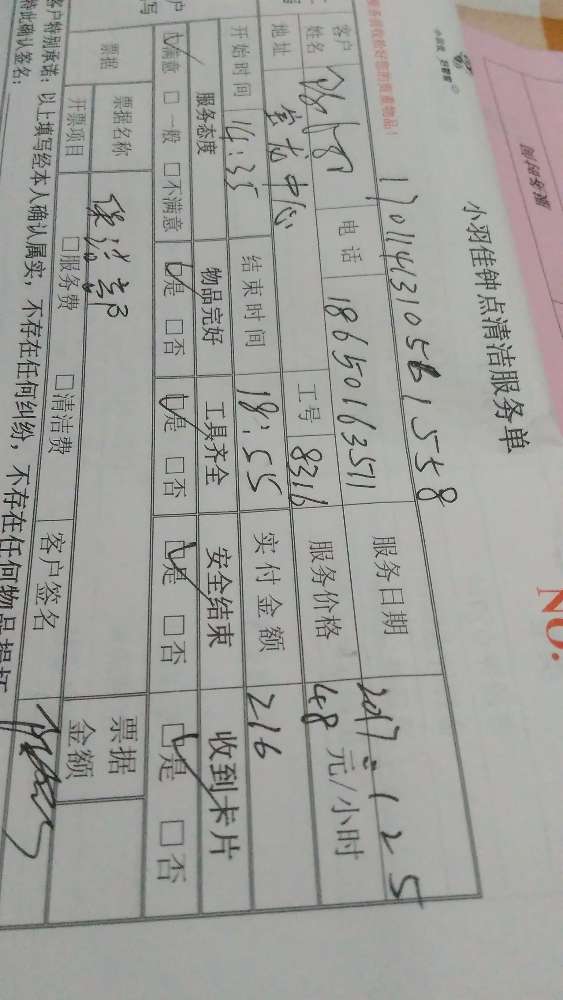 小羽佳钟点清洁服务单
NO.
17011431056 1558
客户姓名 电话 18650163511 服务日期 2017.1.25
地址 宝龙中心 工号 8316 服务价格 48 元/小时
开始时间 14:35 结束时间 18:55 实付金额 216
服务态度 物品完好 工具齐全 安全结束 收到卡片
☑满意 □一般 □不满意 ☑是 □否 ☑是 □否 ☑是 □否 ☑是 □否
票据 票据名称 保洁部 票据金额
开票项目 □服务费 □清洁费 客户签名
客户特别承诺：以上填写经本人确认属实，不存在任何纠纷，不存在任何物品损坏
特此确认签名：